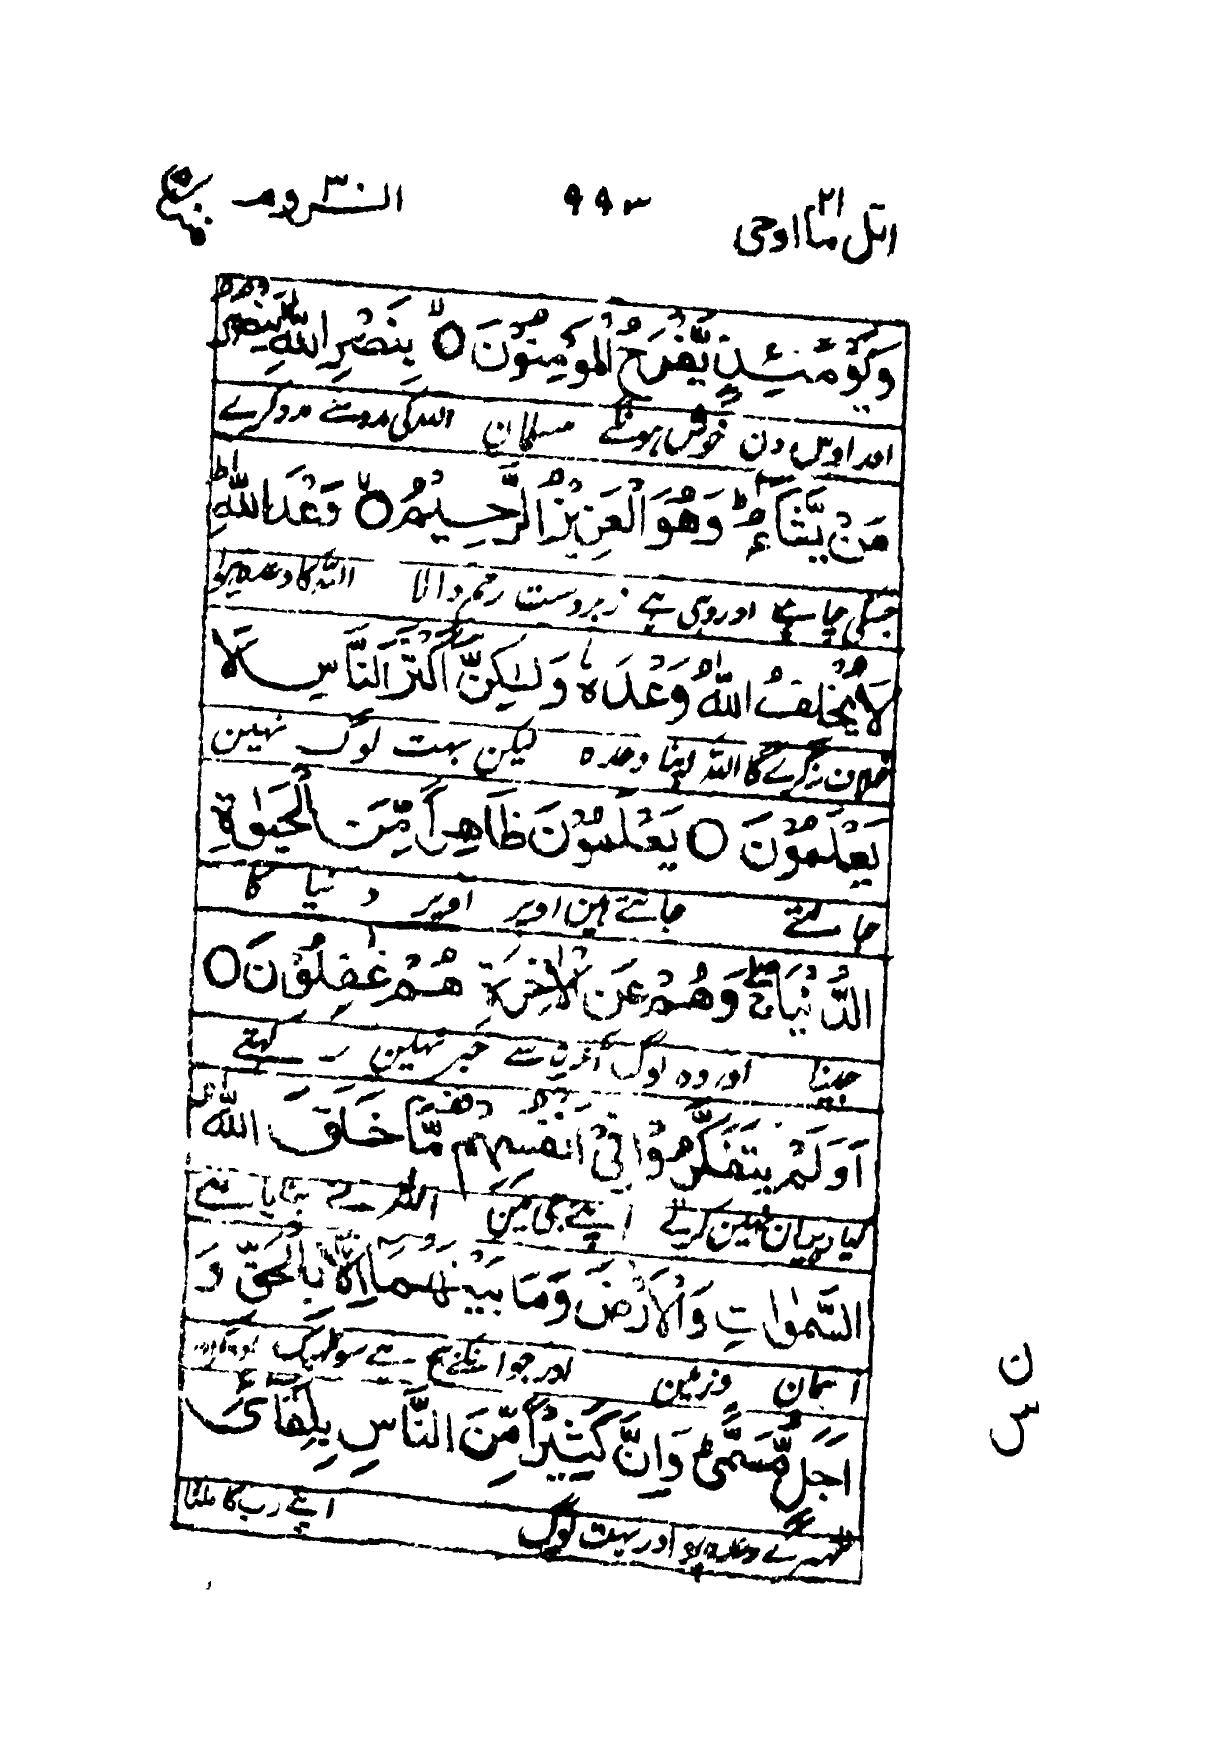 اتل ما اوحی ٢١ ٩٩٣ الروم ٣٠
وَيَوْمَئِذٍ يَّفْرَحُ الْمُؤْمِنُوْنَ ۝ بِنَصْرِ اللّٰهِ يَنْصُرُ
اور اوس دن خوش ہونگے مسلمان اللہ کی مدد سے مدد کرے
مَنْ يَّشَآءُ ط وَهُوَ الْعَزِيْزُ الرَّحِيْمُ ۝ وَعْدَ اللّٰهِ ط
جسکی چاہے اور وہی ہے زبردست رحم والا اللہ کا وعدہ ہوا
لَا يُخْلِفُ اللّٰهُ وَعْدَهٗ وَلٰكِنَّ اَكْثَرَ النَّاسِ لَا
خلاف نکرے گا اللہ اپنا وعدہ لیکن بہت لوگ نہین
يَعْلَمُوْنَ ۝ يَعْلَمُوْنَ ظَاهِرًا مِّنَ الْحَيٰوةِ
جانتے جانتے ہین اوپر اوپر دنیا کا
الدُّنْيَا ج وَهُمْ عَنِ الْاٰخِرَةِ هُمْ غٰفِلُوْنَ ۝
جینا اور وہ لوگ آخرت سے خبر نہین رکہتے
اَوَلَمْ يَتَفَكَّرُوْا فِيْٓ اَنْفُسِهِمْ مَّا خَلَقَ اللّٰهُ
کیا دہیان نہین کرتے اپنے جی مین اللہ نے بنایا ہے
السَّمٰوٰتِ وَالْاَرْضَ وَمَا بَيْنَهُمَآ اِلَّا بِالْحَقِّ وَ
آسمان و زمین اور جو انکے بیچ ہے سو ٹہیک اور
اَجَلٍ مُّسَمًّى ط وَاِنَّ كَثِيْرًا مِّنَ النَّاسِ بِلِقَآئِ
ٹہہرے وعدہ پر اور بہت لوگ اپنے رب کا ملنا
ن
س